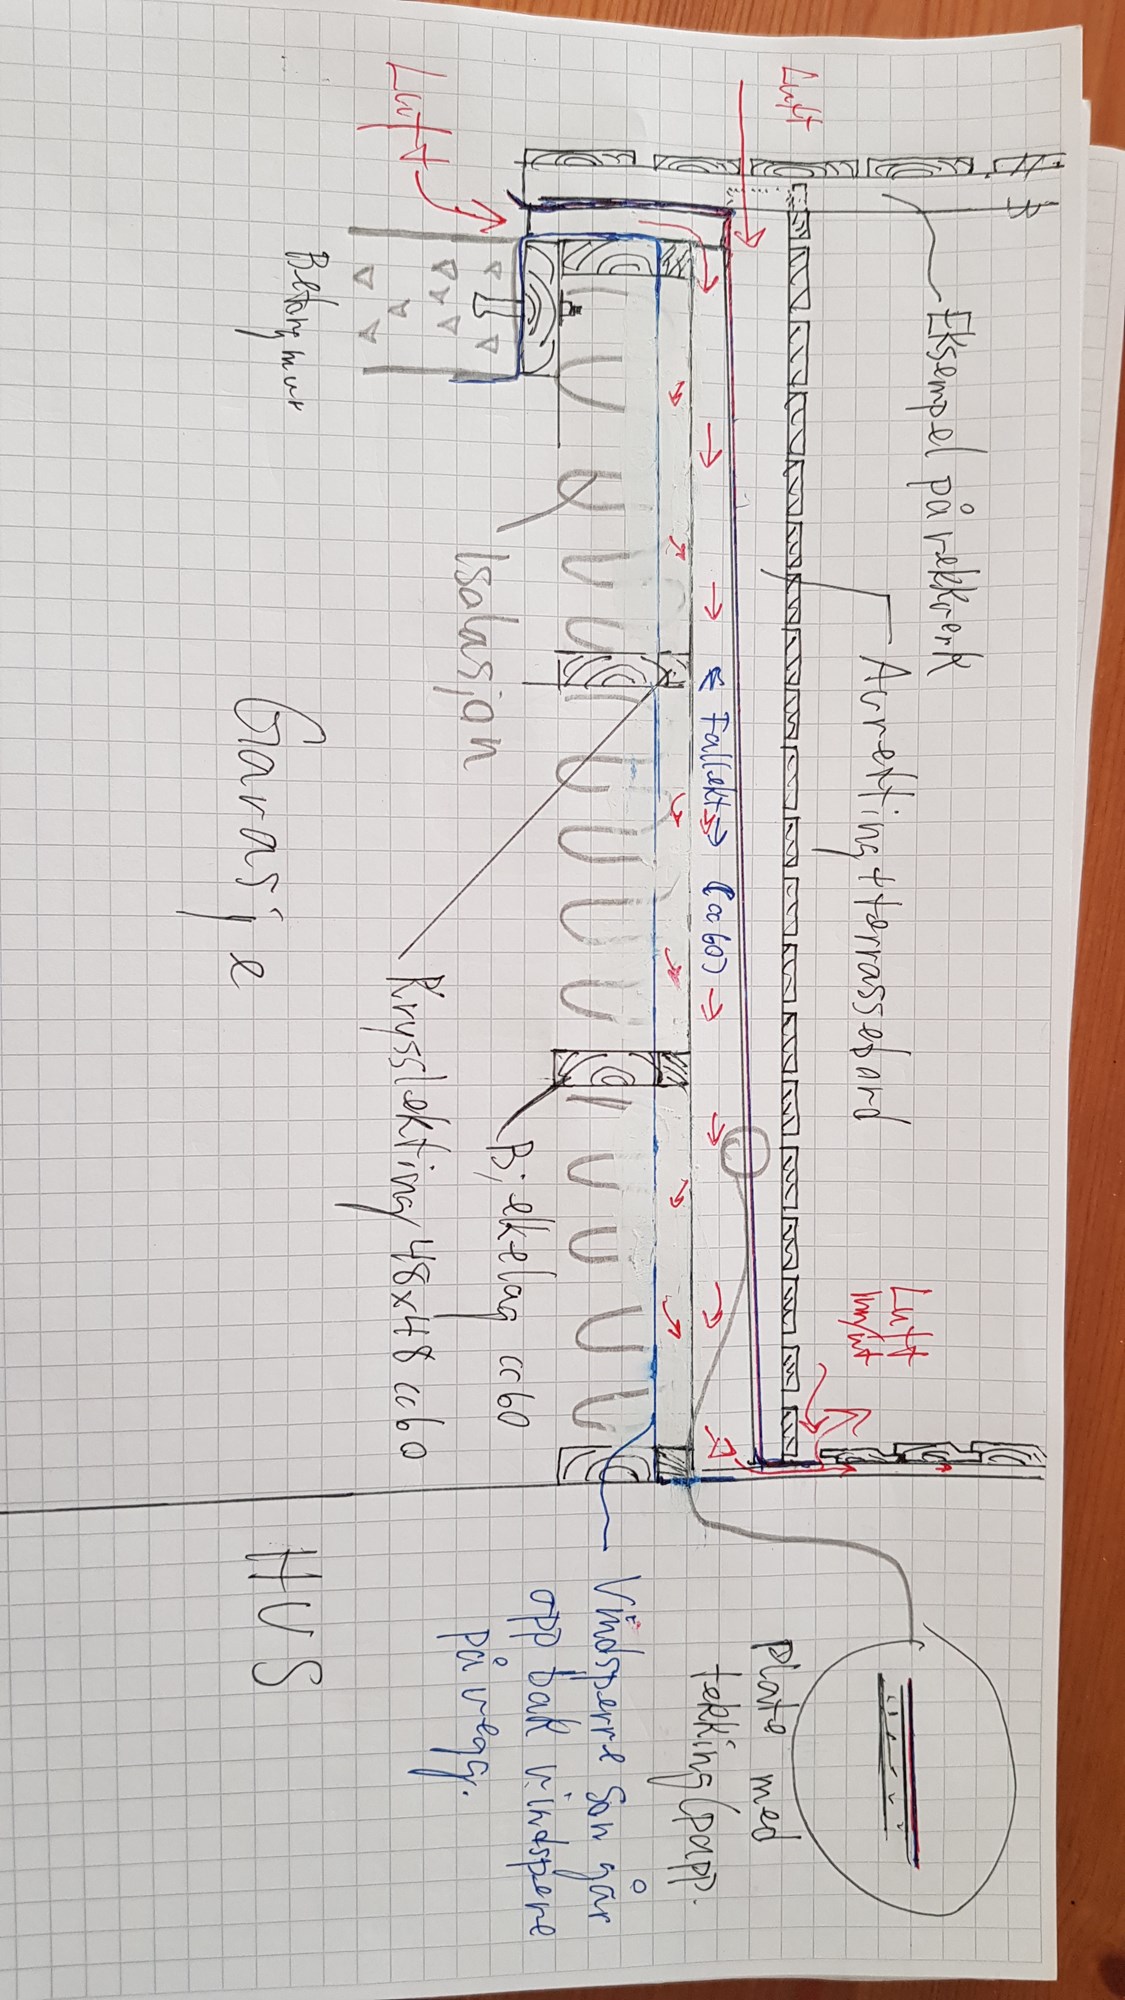 Luft
Luft
Eksempel på rekkverk
Aurekting + terrassebord
Betong mur
Isolasjon
← Fallekt → (cc60)
Garasje
Krysslekting 48x48 cc60
Bjelkelag cc60
Luft
inn/ut
HUS
Vindsperre son går
opp bak vindsperre
på vegg.
Plate med
tekking/papp.